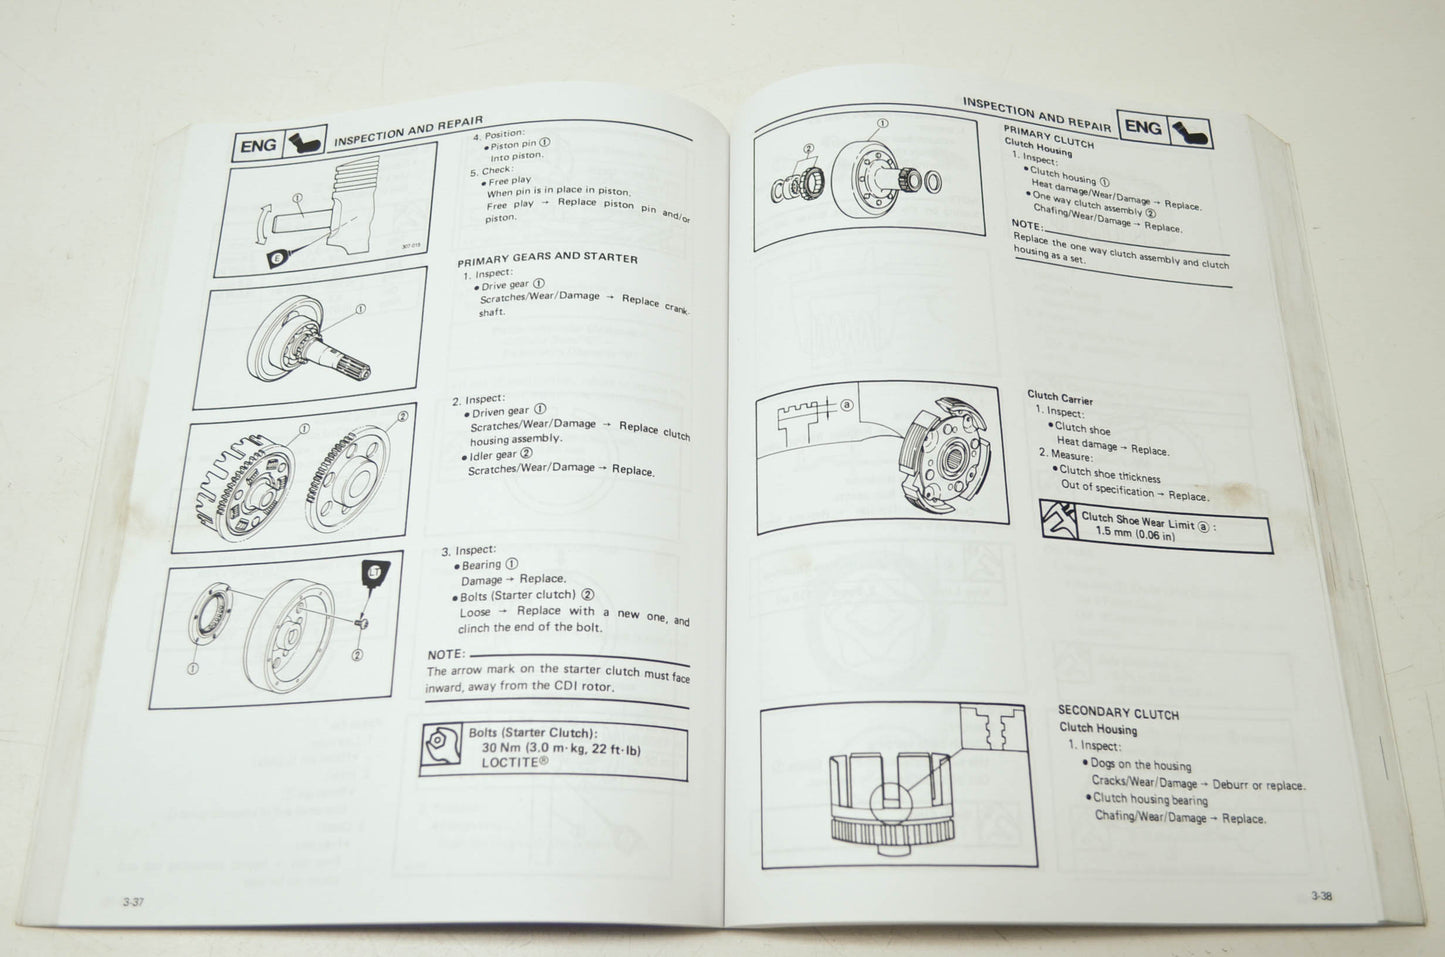 ENG
INSPECTION AND REPAIR
①
E
307-015
4. Position:
●Piston pin ①
Into piston.
5. Check:
●Free play
When pin is in place in piston.
Free play → Replace piston pin and/or
piston.
PRIMARY GEARS AND STARTER
①
1. Inspect:
●Drive gear ①
Scratches/Wear/Damage → Replace crank-
shaft.
①
②
2. Inspect:
●Driven gear ①
Scratches/Wear/Damage → Replace clutch
housing assembly.
●Idler gear ②
Scratches/Wear/Damage → Replace.
LT
①
②
3. Inspect:
●Bearing ①
Damage → Replace.
●Bolts (Starter clutch) ②
Loose → Replace with a new one, and
clinch the end of the bolt.
NOTE:
The arrow mark on the starter clutch must face
inward, away from the CDI rotor.
Bolts (Starter Clutch):
30 Nm (3.0 m·kg, 22 ft·lb)
LOCTITE®
3-37
INSPECTION AND REPAIR
ENG
①
②
PRIMARY CLUTCH
Clutch Housing
1. Inspect:
●Clutch housing ①
Heat damage/Wear/Damage → Replace.
●One way clutch assembly ②
Chafing/Wear/Damage → Replace.
NOTE:
Replace the one way clutch assembly and clutch
housing as a set.
ⓐ
Clutch Carrier
1. Inspect:
●Clutch shoe
Heat damage → Replace.
2. Measure:
●Clutch shoe thickness
Out of specification → Replace.
Clutch Shoe Wear Limit ⓐ :
1.5 mm (0.06 in)
SECONDARY CLUTCH
Clutch Housing
1. Inspect:
●Dogs on the housing
Cracks/Wear/Damage → Deburr or replace.
●Clutch housing bearing
Chafing/Wear/Damage → Replace.
3-38